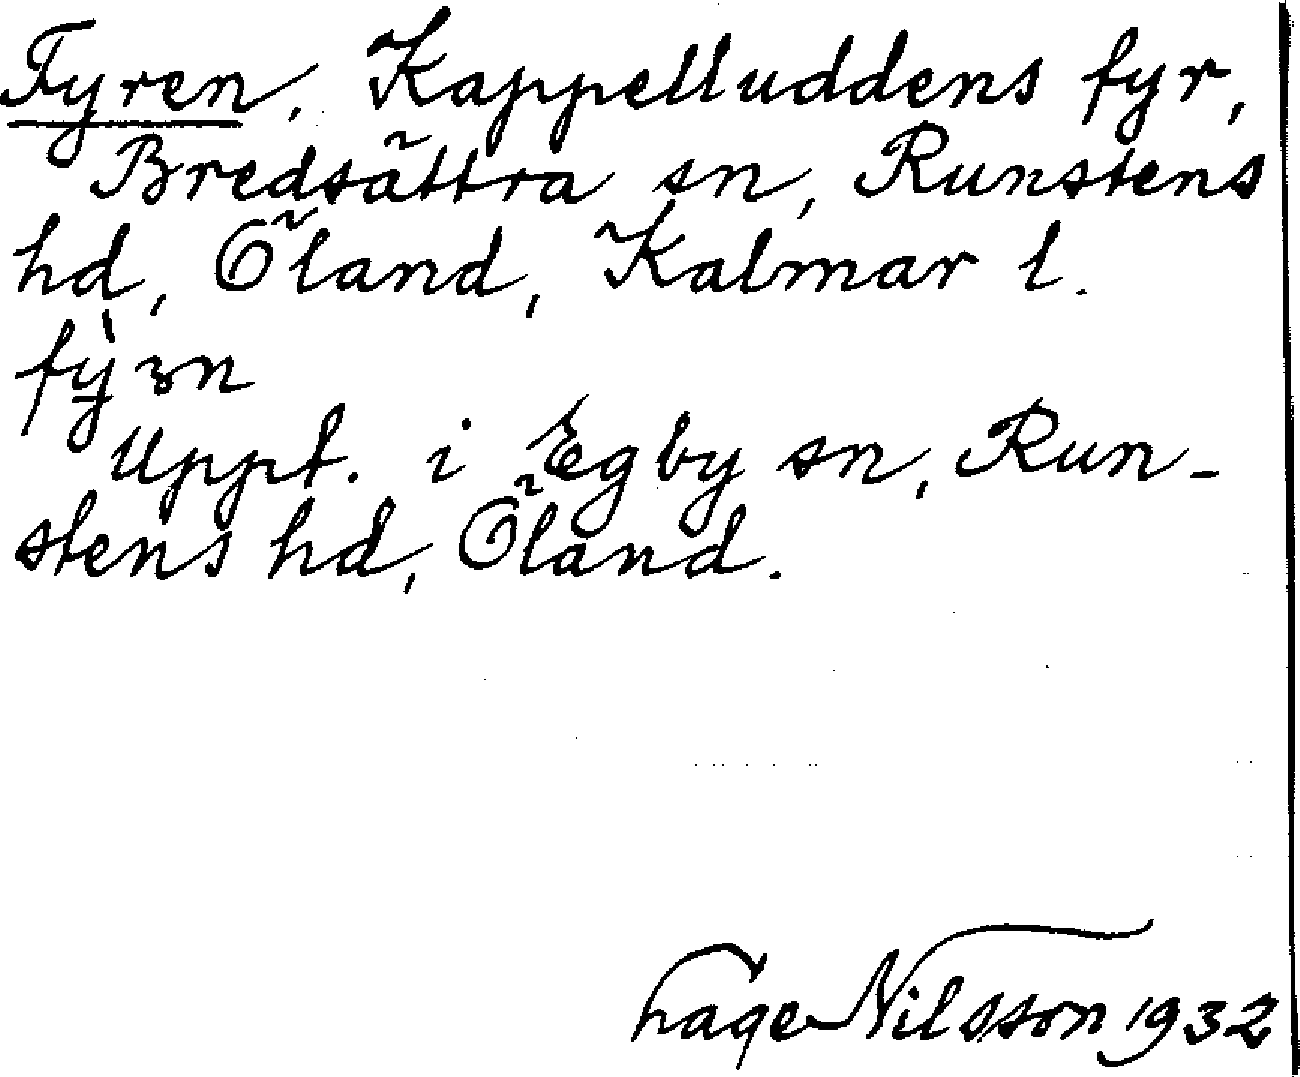 Fyren, Kappelluddens fyr,
Bredsättra sn, Runstens
hd, Öland, Kalmar l.
fỳ̠rn
Uppt. i Egby sn, Run-
stens hd, Öland.
Hage Nilsson 1932